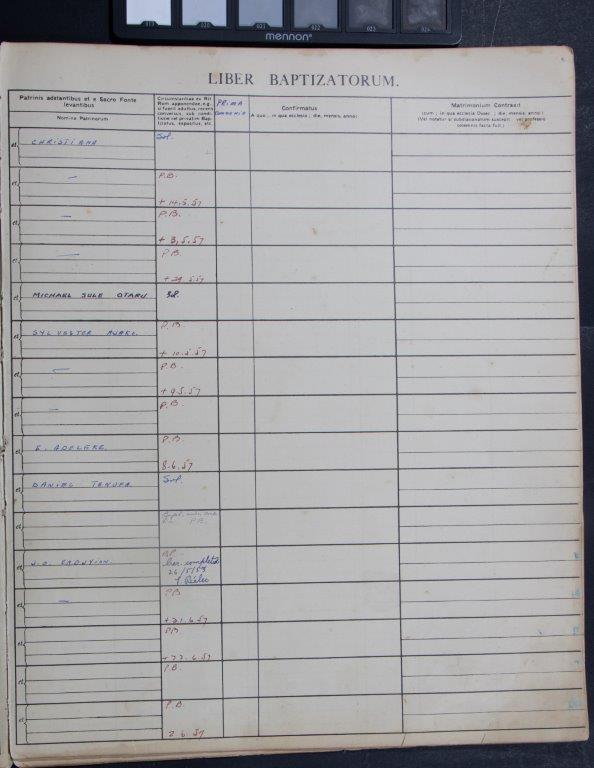 019 020 021 022 023 024
mennon
LIBER BAPTIZATORUM.
Patrinis adstantibus et e Sacro Fonte
levantibus
Nomina Patrinorum
Circumstantiae ex Rit
Rom apponendae, e.g.
si fuerit adultus, recens
conversus, sub condi
tione vel privatim Bap
tizatus, expositus, etc.
PRIMA
Confirmatus
A quo ; in qua ecclesia ; die, mensis, anno:
Matrimonium Contraxit
(cum ; in qua ecclesia Dioec. ; die, mensis, anno:)
(Vel notatur si subdiaconatum suscepit vel professio
solemnis facta fuit.)
et CHRISTIANA Sol.
et — P.B.
+ 14.5.57
et — P.B.
+ 3,5.57
et — P.B.
+ 29.5.57
et MICHAEL SULE OTARU Sol.
et SYLVESTER P.B.
+ 10.5.57
et — P.B.
+ 9.5.57
et — P.B.
et E. ADELEKE. P.B.
8.6.57
et DANIEL Sol.
et P.B.
et J.O. BP.
Cer. completed
26/5/59
et — PB
+ 21.6.57
et PB
+ 22.6.57
et P.B.
et P.B.
2 6.57